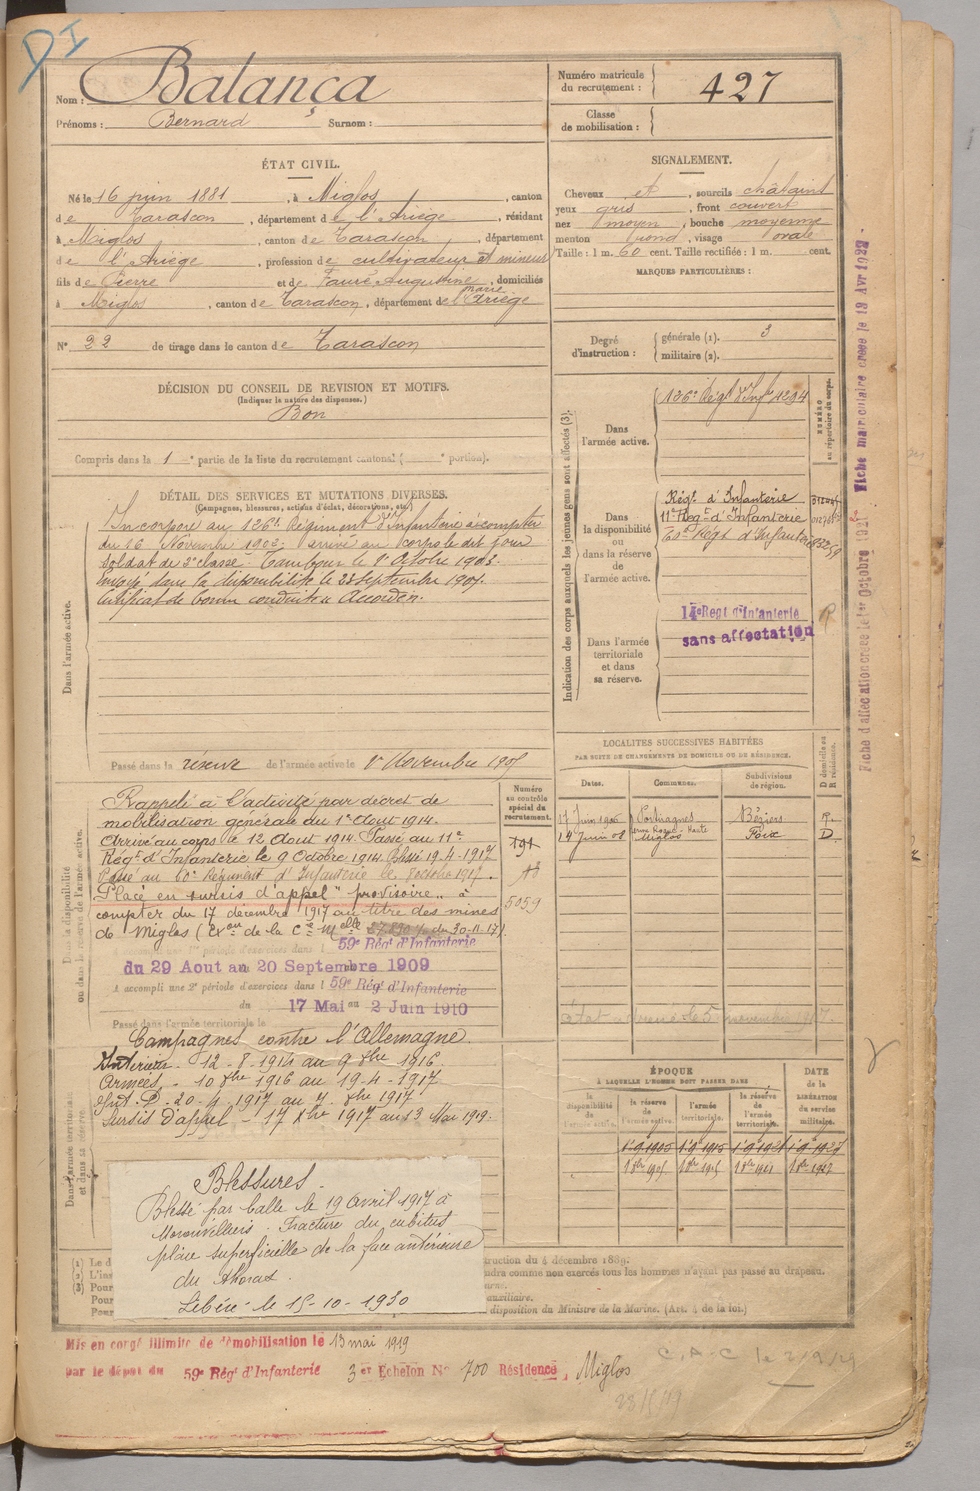 DI
Nom : Balança
Prénoms : Bernard Surnom :
Numéro matricule du recrutement : 427
Classe de mobilisation :
ÉTAT CIVIL.
Né le 16 juin 1881, à Miglos, canton
de Tarascon, département de l'Ariège, résidant
à Miglos, canton de Tarascon, département
de l'Ariège, profession de cultivateur et mineur
fils de Pierre et de Fauré Augustine marie, domiciliés
à Miglos, canton de Tarascon, département de l'Ariège
N° 22 de tirage dans le canton de Tarascon
SIGNALEMENT.
Cheveux et, sourcils châtains
yeux gris, front couvert
nez moyen, bouche moyenne
menton rond, visage ovale
Taille : 1 m. 60 cent. Taille rectifiée : 1 m. cent.
MARQUES PARTICULIÈRES :
Degré d'instruction : générale (1). 3
militaire (2).
DÉCISION DU CONSEIL DE REVISION ET MOTIFS.
(Indiquer la nature des dispenses.)
Bon
Compris dans la 1e partie de la liste du recrutement cantonal ( e portion).
DÉTAIL DES SERVICES ET MUTATIONS DIVERSES.
(Campagnes, blessures, actions d'éclat, décorations, etc.)
Dans l'armée active.
Incorporé au 126e Régiment d'Infanterie à compter
du 16 Novembre 1902, arrivé au corps le dit jour
soldat de 2e classe. Tambour le 1er Octobre 1903.
Envoyé dans la disponibilité le 23 septembre 1905.
Certificat de bonne conduite Accordé.
Passé dans la réserve de l'armée active le 1er Novembre 1905
Indication des corps auxquels les jeunes gens sont affectés (3).
NUMÉRO au répertoire du corps.
Dans l'armée active.
126e Régt d'Infie 4294
Dans la disponibilité ou dans la réserve de l'armée active.
Régt d'Infanterie
11e Régt d'Infanterie
60e Régt d'Infanterie
Dans l'armée territoriale et dans sa réserve.
14e Regt d'Infanterie
sans affectation
R
Dans la disponibilité ou dans la réserve de l'armée active.
Numéro au contrôle spécial du recrutement.
Rappelé à l'activité par décret de
mobilisation générale du 1er Aout 1914.
Arrivé au corps le 12 Aout 1914. Passé au 11e
Régt d'Infanterie le 9 Octobre 1914. Blessé 19-4-1917
Passé au 60e Régiment d'Infanterie le 8 octobre 1917.
Placé en sursis d'appel "provisoire" à
compter du 17 décembre 1917 au titre des mines
de Miglos (Exon de la Ce Melle 27830 du 30-11-17).
791
5059
59e Régt d'Infanterie
du 29 Aout au 20 Septembre 1909
A accompli une 2e période d'exercices dans l 59e Régt d'Infanterie
du 17 Mai au 2 Juin 1910
Passé dans l'armée territoriale le
Campagnes contre l'Allemagne.
Intérieur. 12-8-1914 au 9 8bre 1916
Armées. 10 8bre 1916 au 19-4-1917
Int. D. 20-4-1917 au 7 8bre 1917
Sursis d'appel - 17 Xbre 1917 au 13 Mai 1919.
Dans l'armée territoriale et dans sa réserve.
LOCALITÉS SUCCESSIVES HABITÉES
PAR SUITE DE CHANGEMENTS DE DOMICILE OU DE RÉSIDENCE.
Dates. Communes. Subdivisions de région. D domicile ou R résidence.
17 Juin 1906 Portiragnes Béziers R.
14 Juin 08 Miglos Foix D.
ÉPOQUE
À LAQUELLE L'HOMME DOIT PASSER DANS
la disponibilité de l'armée active. la réserve de l'armée active. l'armée territoriale. la réserve de l'armée territoriale.
DATE de la LIBÉRATION du service militaire.
1er 9 1905 1er 9 1915 1er 9 1921 1er 9 1927
Blessures.
Blessé par balle le 19 avril 1917 à
Moronvilliers. Fracture du cubitus
plaie superficielle de la face antérieure
du thorax.
Libéré le 15-10-1930
(1) Le d
(2) L'ins
(3) Pour
Pour
Pour
ruction du 4 décembre 1889.
ndra comme non exercés tous les hommes n'ayant pas passé au drapeau.
uxiliaire.
disposition du Ministre de la Marine. (Art. 4 de la loi.)
Mis en congé illimité de démobilisation le 13 mai 1919
par le dépôt du 59e Régt d'Infanterie 3 er Echelon N° 700 Résidence, Miglos
C.A.C. le 2/9/29
Fiche d'affectation créée le 1er Octobre
Fiche matriculaire créée le 19 Avr 1922